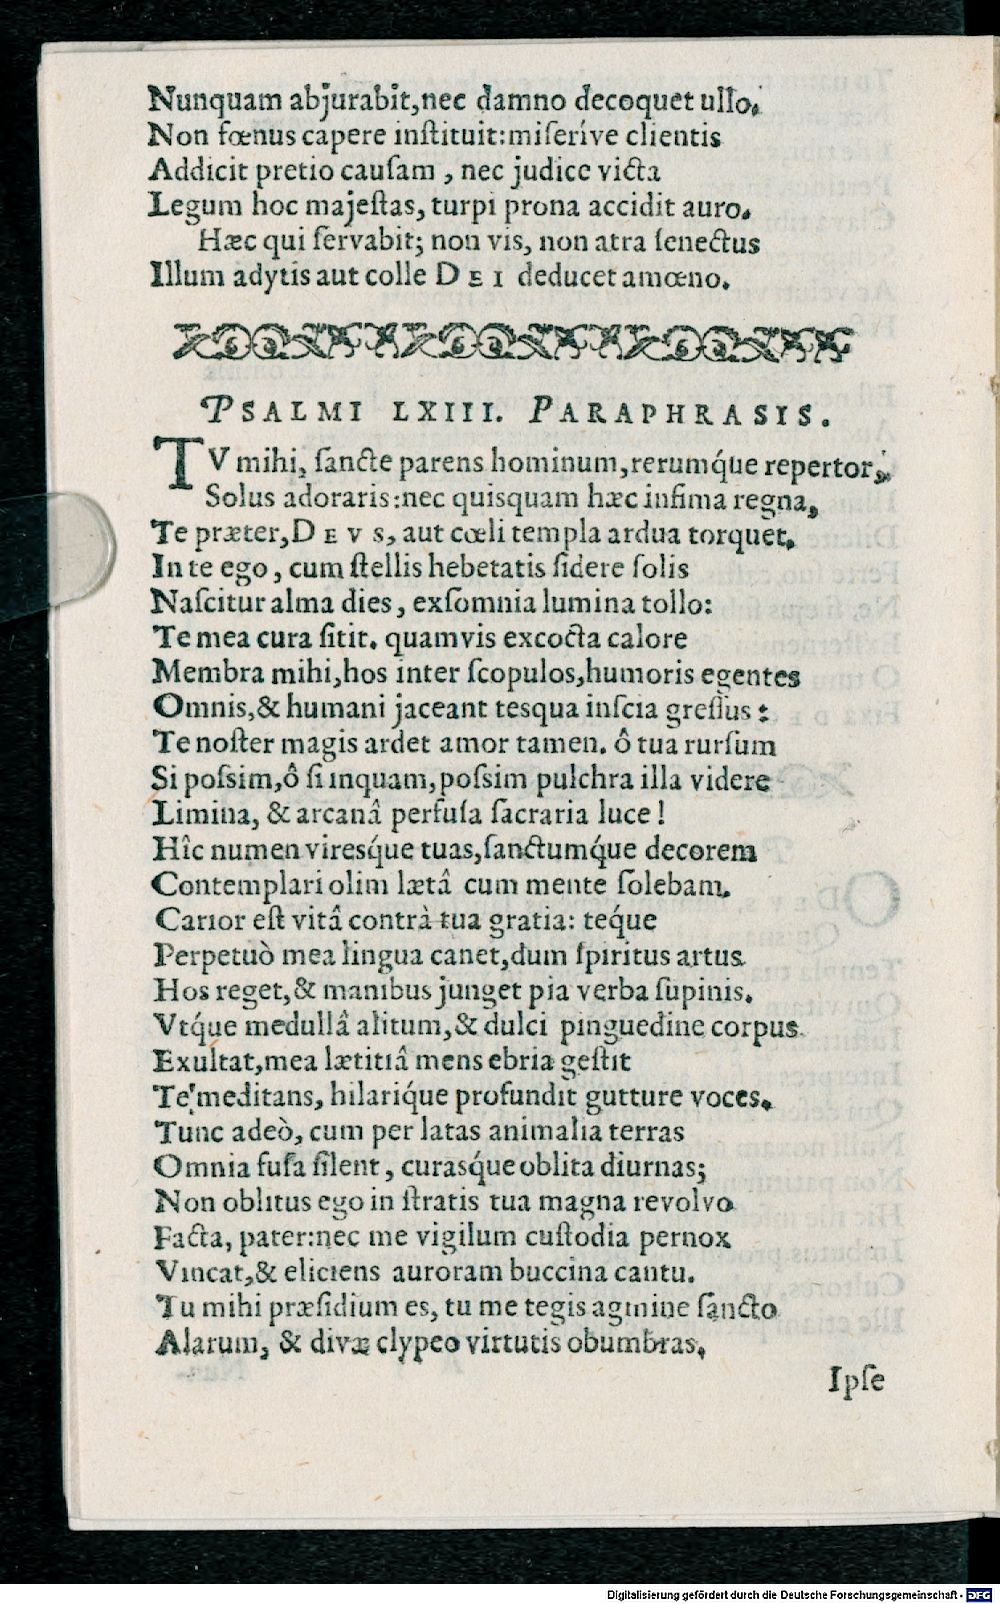 Nunquam abjurabit, nec damno decoquet ullo.
Non fœnus capere inſtituit: miſeríve clientis
Addicit pretio cauſam, nec judice victa
Legum hoc majeſtas, turpi prona accidit auro.
Hæc qui ſervabit; non vis, non atra ſenectus
Illum adytis aut colle DEI deducet amœno.
PSALMI LXIII. PARAPHRASIS.
TV mihi, ſancte parens hominum, rerumq́ue repertor,
Solus adoraris: nec quisquam hæc infima regna,
Te præter, DEVS, aut cœli templa ardua torquet.
In te ego, cum ſtellis hebetatis ſidere ſolis
Naſcitur alma dies, exſomnia lumina tollo:
Te mea cura ſitit. quamvis excocta calore
Membra mihi, hos inter ſcopulos, humoris egentes
Omnis, & humani jaceant tesqua inſcia greſſus:
Te noſter magis ardet amor tamen. ô tua rurſum
Si poſsim, ô ſi inquam, poſsim pulchra illa videre
Limina, & arcanâ perfuſa ſacraria luce!
Hîc numen viresq́ue tuas, ſanctumq́ue decorem
Contemplari olim lætâ cum mente ſolebam.
Carior eſt vitâ contrà tua gratia: teq́ue
Perpetuò mea lingua canet, dum ſpiritus artus
Hos reget, & manibus junget pia verba ſupinis.
Vtq́ue medullâ alitum, & dulci pinguedine corpus
Exultat, mea lætitiâ mens ebria geſtit
Te meditans, hilariq́ue profundit gutture voces.
Tunc adeò, cum per latas animalia terras
Omnia fuſa ſilent, curasq́ue oblita diurnas;
Non oblitus ego in ſtratis tua magna revolvo
Facta, pater: nec me vigilum cuſtodia pernox
Vincat, & eliciens auroram buccina cantu.
Tu mihi præſidium es, tu me tegis agmine ſancto
Alarum, & divæ clypeo virtutis obumbras.
Ipſe
Digitalisierung gefördert durch die Deutsche Forschungsgemeinschaft - DFG